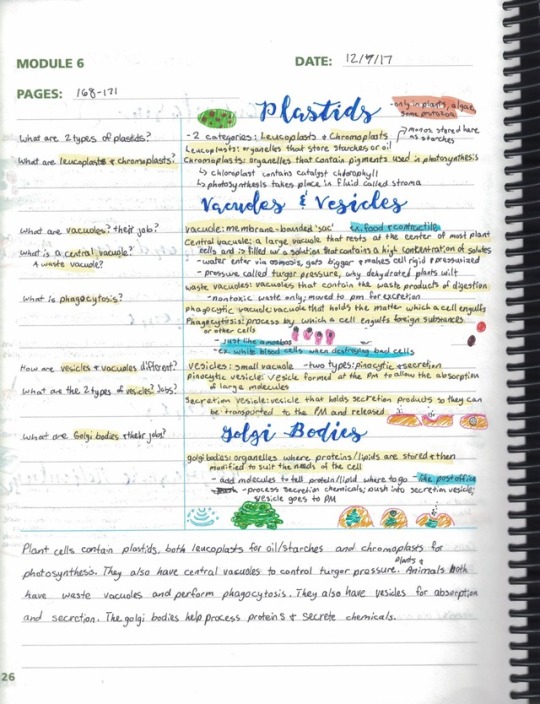 MODULE 6
DATE: 12/7/17
PAGES: 168-171
Plastids
-only in plants, algae,
some protozoa
What are 2 types of plastids?
-2 categories: Leucoplasts & Chromoplasts
monos stored here
as starches
Leucoplasts: organelles that store starches or oil
What are leucoplasts & chromoplasts?
Chromoplasts: organelles that contain pigments used in photosynthesis
↳ chloroplast contains catalyst chlorophyll
↳ photosynthesis takes place in fluid called stroma
Vacuoles & Vesicles
What are vacuoles? their job?
vacuole: membrane-bounded 'sac' ex. food & contractile
Central vacuole: a large vacuole that rests at the center of most plant
What is a central vacuole?
cells and is filled w/ a solution that contains a high concentration of solutes
A waste vacuole?
- water enter via osmosis, gets bigger & makes cell rigid & pressurized
- pressure called turgor pressure, why dehydrated plants wilt
waste vacuoles: vacuoles that contain the waste products of digestion
What is phagocytosis?
-nontoxic waste only; moved to pm for excretion
phagocytic vacuole: vacuole that holds the matter which a cell engulfs
Phagocytosis: process by which a cell engulfs foreign substances
or other cells
- just like amoebas
-ex. white blood cells when destroying bad cells
How are vesicles & vacuoles different?
vesicles: small vacuole -two types: pinocytic & secretion
What are the 2 types of vesicles? Jobs?
pinocytic vesicle: vesicle formed at the PM to allow the absorption
of large molecules
Secretion vesicle: vesicle that holds secretion products so they can
be transported to the PM and released
Golgi Bodies
What are Golgi bodies & their jobs?
golgi bodies: organelles where proteins/lipids are stored & then
modified to suit the needs of the cell
- add molecules to tell protein/lipid where to go The post office
-process secretion chemicals; push into secretion vesicle;
vesicle goes to PM
Plant cells contain plastids, both leucoplasts for oil/starches and chromoplasts for
photosynthesis. They also have central vacuoles to control turgor pressure. Plants & Animals both
have waste vacuoles and perform phagocytosis. They also have vesicles for absorption
and secretion. The golgi bodies help process proteins & secrete chemicals.
26